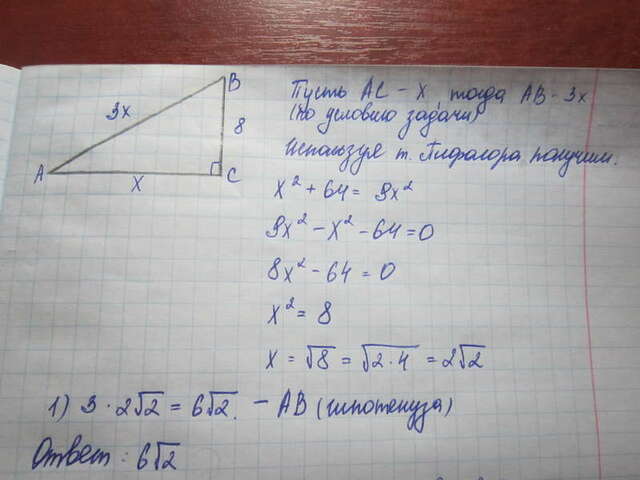 B
3x
8
A
x
C
Пусть AC - x, тогда AB - 3x
(по условию задачи)
Используя т. Пифагора получим.
x² + 64 = 9x²
9x² - x² - 64 = 0
8x² - 64 = 0
x² = 8
x = √8 = √2·4 = 2√2
1) 3 · 2√2 = 6√2. - AB (гипотенуза)
Ответ: 6√2